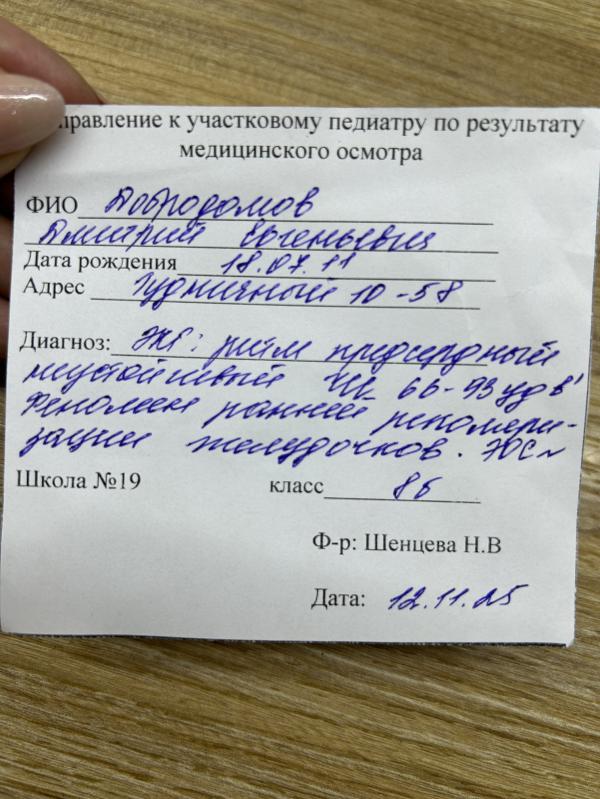 правление к участковому педиатру по результату
медицинского осмотра
ФИО Добродомов
Дмитрий Евгеньевич
Дата рождения 18.07.11
Адрес 10-58
Диагноз: ЭКГ: ритм предсердный
неустойчивый ЧСС 66-93 уд в'
Феномен ранней реполяри-
зации желудочков. ЭОС
Школа №19 класс 8б
Ф-р: Шенцева Н.В
Дата: 12.11.25